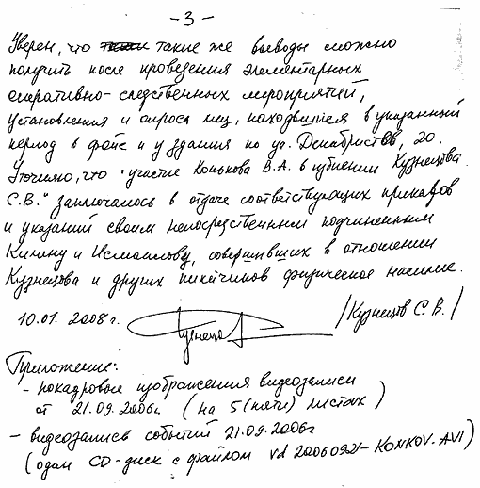 - 3 -
Уверен, что такие же выводы можно
получить после проведения элементарных
оперативно-следственных мероприятий,
установления и опроса лиц, находившихся в указанный
период в фойе и у здания по ул. Декабристов, 20.
Уточню, что "участие Конькова В.А. в избиении Кузнецова
С.В." заключалось в отдаче соответствующих приказов
и указаний своим непосредственным подчиненным
Кинину и Исмаилову, совершивших в отношении
Кузнецова и других пикетчиков физическое насилие.
10.01.2008г. /Кузнецов С.В./
Приложение:
- покадровые изображения видеозаписи
от 21.09.2006г (на 5 (пяти) листах)
- видеозапись событий 21.09.2006г
(один CD-диск с файлом vd 20060921-KONKOV.AVI)